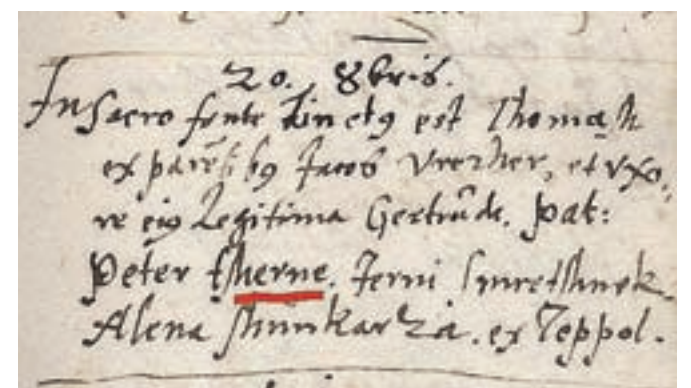 20. 8bris.
In Sacro fonte tinctꝰ est Thomas
ex parẽtibꝰ Jacob Vrezher, et vxo,
re eiꝰ Legitima Gertrude. pat:
Peter tsherne. Jerni Smretshnek.
Alena shunkarza. ex Teppol.